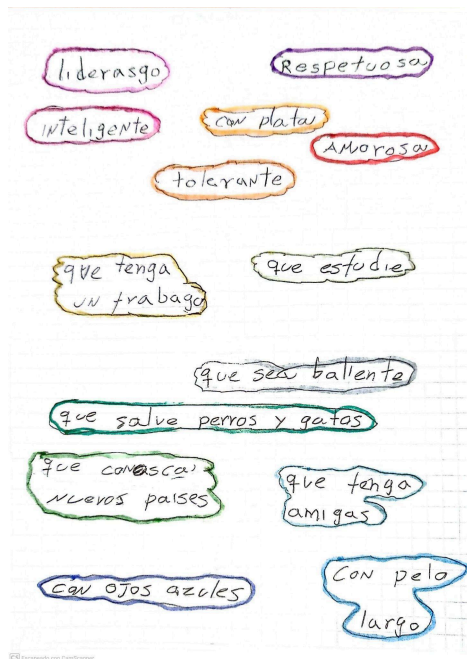 liderasgo
Respetuosa
inteligente
con plata
Amorosa
tolerante
que tenga
un trabago
que estudie
que sea baliente
que salve perros y gatos
que conosca
nuevos paises
que tenga
amigas
con ojos azules
con pelo
largo
Escaneado con CamScanner